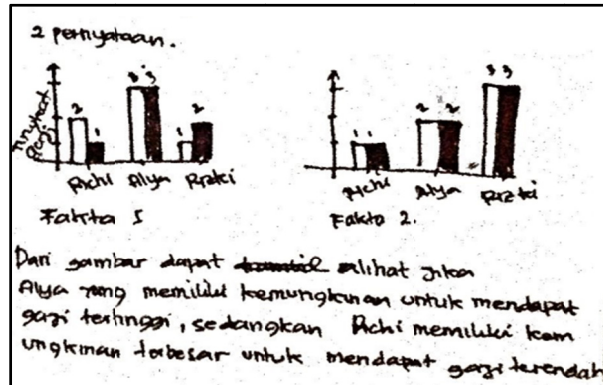 2 pernyataan.
3 3
2 1 1 2
Tingkat
Gaji
Richi Alya Rizki
Fakta 1
3 3
2 2
1 1
Richi Alya Rizki
Fakta 2.
Dari gambar dapat dilihat jika
Alya yang memiliki kemungkinan untuk mendapat
gaji tertinggi, sedangkan Richi memiliki kem
ungkinan terbesar untuk mendapat gaji terendah